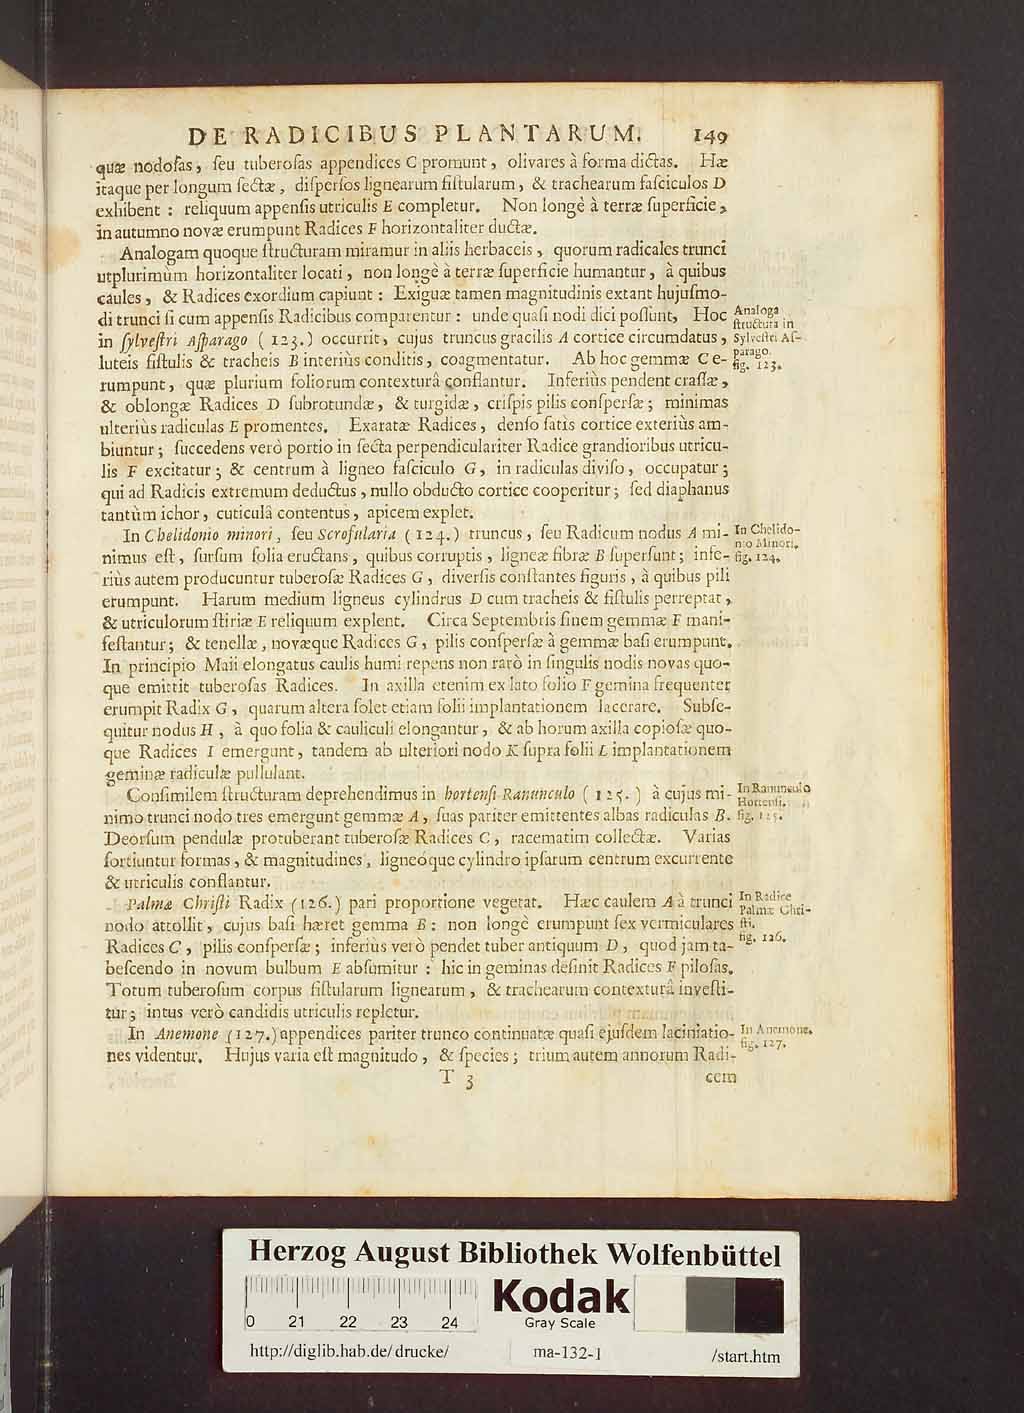 DE RADICIBUS PLANTARUM. 149
quæ nodoſas, ſeu tuberoſas appendices C promunt, olivares à forma dictas. Hæ
itaque per longum ſectæ, diſperſos lignearum fiſtularum, & trachearum faſciculos D
exhibent : reliquum appenſis utriculis E completur. Non longè à terræ ſuperficie,
in autumno novæ erumpunt Radices F horizontaliter ductæ.
Analogam quoque ſtructuram miramur in aliis herbaceis, quorum radicales trunci
utplurimùm horizontaliter locati, non longè à terræ ſuperficie humantur, à quibus
caules, & Radices exordium capiunt : Exiguæ tamen magnitudinis extant hujuſmo-
di trunci ſi cum appenſis Radicibus comparentur : unde quaſi nodi dici poſſunt, Hoc
in ſylveſtri Aſparago (123.) occurrit, cujus truncus gracilis A cortice circumdatus,
luteis fiſtulis & tracheis B interiùs conditis, coagmentatur. Ab hoc gemmæ C e-
rumpunt, quæ plurium foliorum contexturâ conflantur. Inferiùs pendent craſſæ,
& oblongæ Radices D ſubrotundæ, & turgidæ, criſpis pilis conſperſæ; minimas
ulteriùs radiculas E promentes. Exaratæ Radices, denſo ſatis cortice exteriùs am-
biuntur; ſuccedens verò portio in ſecta perpendiculariter Radice grandioribus utricu-
lis F excitatur; & centrum à ligneo faſciculo G, in radiculas diviſo, occupatur;
qui ad Radicis extremum deductus, nullo obducto cortice cooperitur; ſed diaphanus
tantùm ichor, cuticulâ contentus, apicem explet.
In Chelidonio minori, ſeu Scrofularia (124.) truncus, ſeu Radicum nodus A mi-
nimus eſt, ſurſum folia eructans, quibus corruptis, ligneæ fibræ B ſuperſunt; infe-
riùs autem producuntur tuberoſæ Radices G, diverſis conſtantes figuris, à quibus pili
erumpunt. Harum medium ligneus cylindrus D cum tracheis & fiſtulis perreptat,
& utriculorum ſtiriæ E reliquum explent. Circa Septembris finem gemmæ F mani-
feſtantur; & tenellæ, novæque Radices G, pilis conſperſæ à gemmæ baſi erumpunt.
In principio Maii elongatus caulis humi repens non rarò in ſingulis nodis novas quo-
que emittit tuberoſas Radices. In axilla etenim ex lato folio F gemina frequenter
erumpit Radix G, quarum altera ſolet etiam folii implantationem lacerare. Subſe-
quitur nodus H, à quo folia & cauliculi elongantur, & ab horum axilla copioſæ quo-
que Radices I emergunt, tandem ab ulteriori nodo K ſupra folii L implantationem
geminæ radiculæ pullulant.
Conſimilem ſtructuram deprehendimus in hortenſi Ranunculo (125.) à cujus mi-
nimo trunci nodo tres emergunt gemmæ A, ſuas pariter emittentes albas radiculas B.
Deorſum pendulæ protuberant tuberoſæ Radices C, racematim collectæ. Varias
ſortiuntur formas, & magnitudines, ligneóque cylindro ipſarum centrum excurrente
& utriculis conflantur.
Palmæ Chriſti Radix (126.) pari proportione vegetat. Hæc caulem A à trunci
nodo attollit, cujus baſi hæret gemma B : non longè erumpunt ſex vermiculares
Radices C, pilis conſperſæ; inferiùs verò pendet tuber antiquum D, quod jam ta-
beſcendo in novum bulbum E abſumitur : hic in geminas deſinit Radices F piloſas.
Totum tuberoſum corpus fiſtularum lignearum, & trachearum contexturâ inveſti-
tur; intus verò candidis utriculis repletur.
In Anemone (127.) appendices pariter trunco continuatæ quaſi ejuſdem laciniatio-
nes videntur. Hujus varia eſt magnitudo, & ſpecies; trium autem annorum Radi-
T 3 cem
Analoga
ſtructura in
Sylveſtri Aſ-
parago.
fig. 123.
In Chelido-
nio Minori.
fig. 124.
In Ranunculo
Hortenſi.
fig. 125.
In Radice
Palmæ Chri-
ſti.
fig. 126.
In Anemone.
fig. 127.
Herzog August Bibliothek Wolfenbüttel
0 21 22 23 24
Kodak
Gray Scale
http://diglib.hab.de/drucke/ ma-132-1 /start.htm